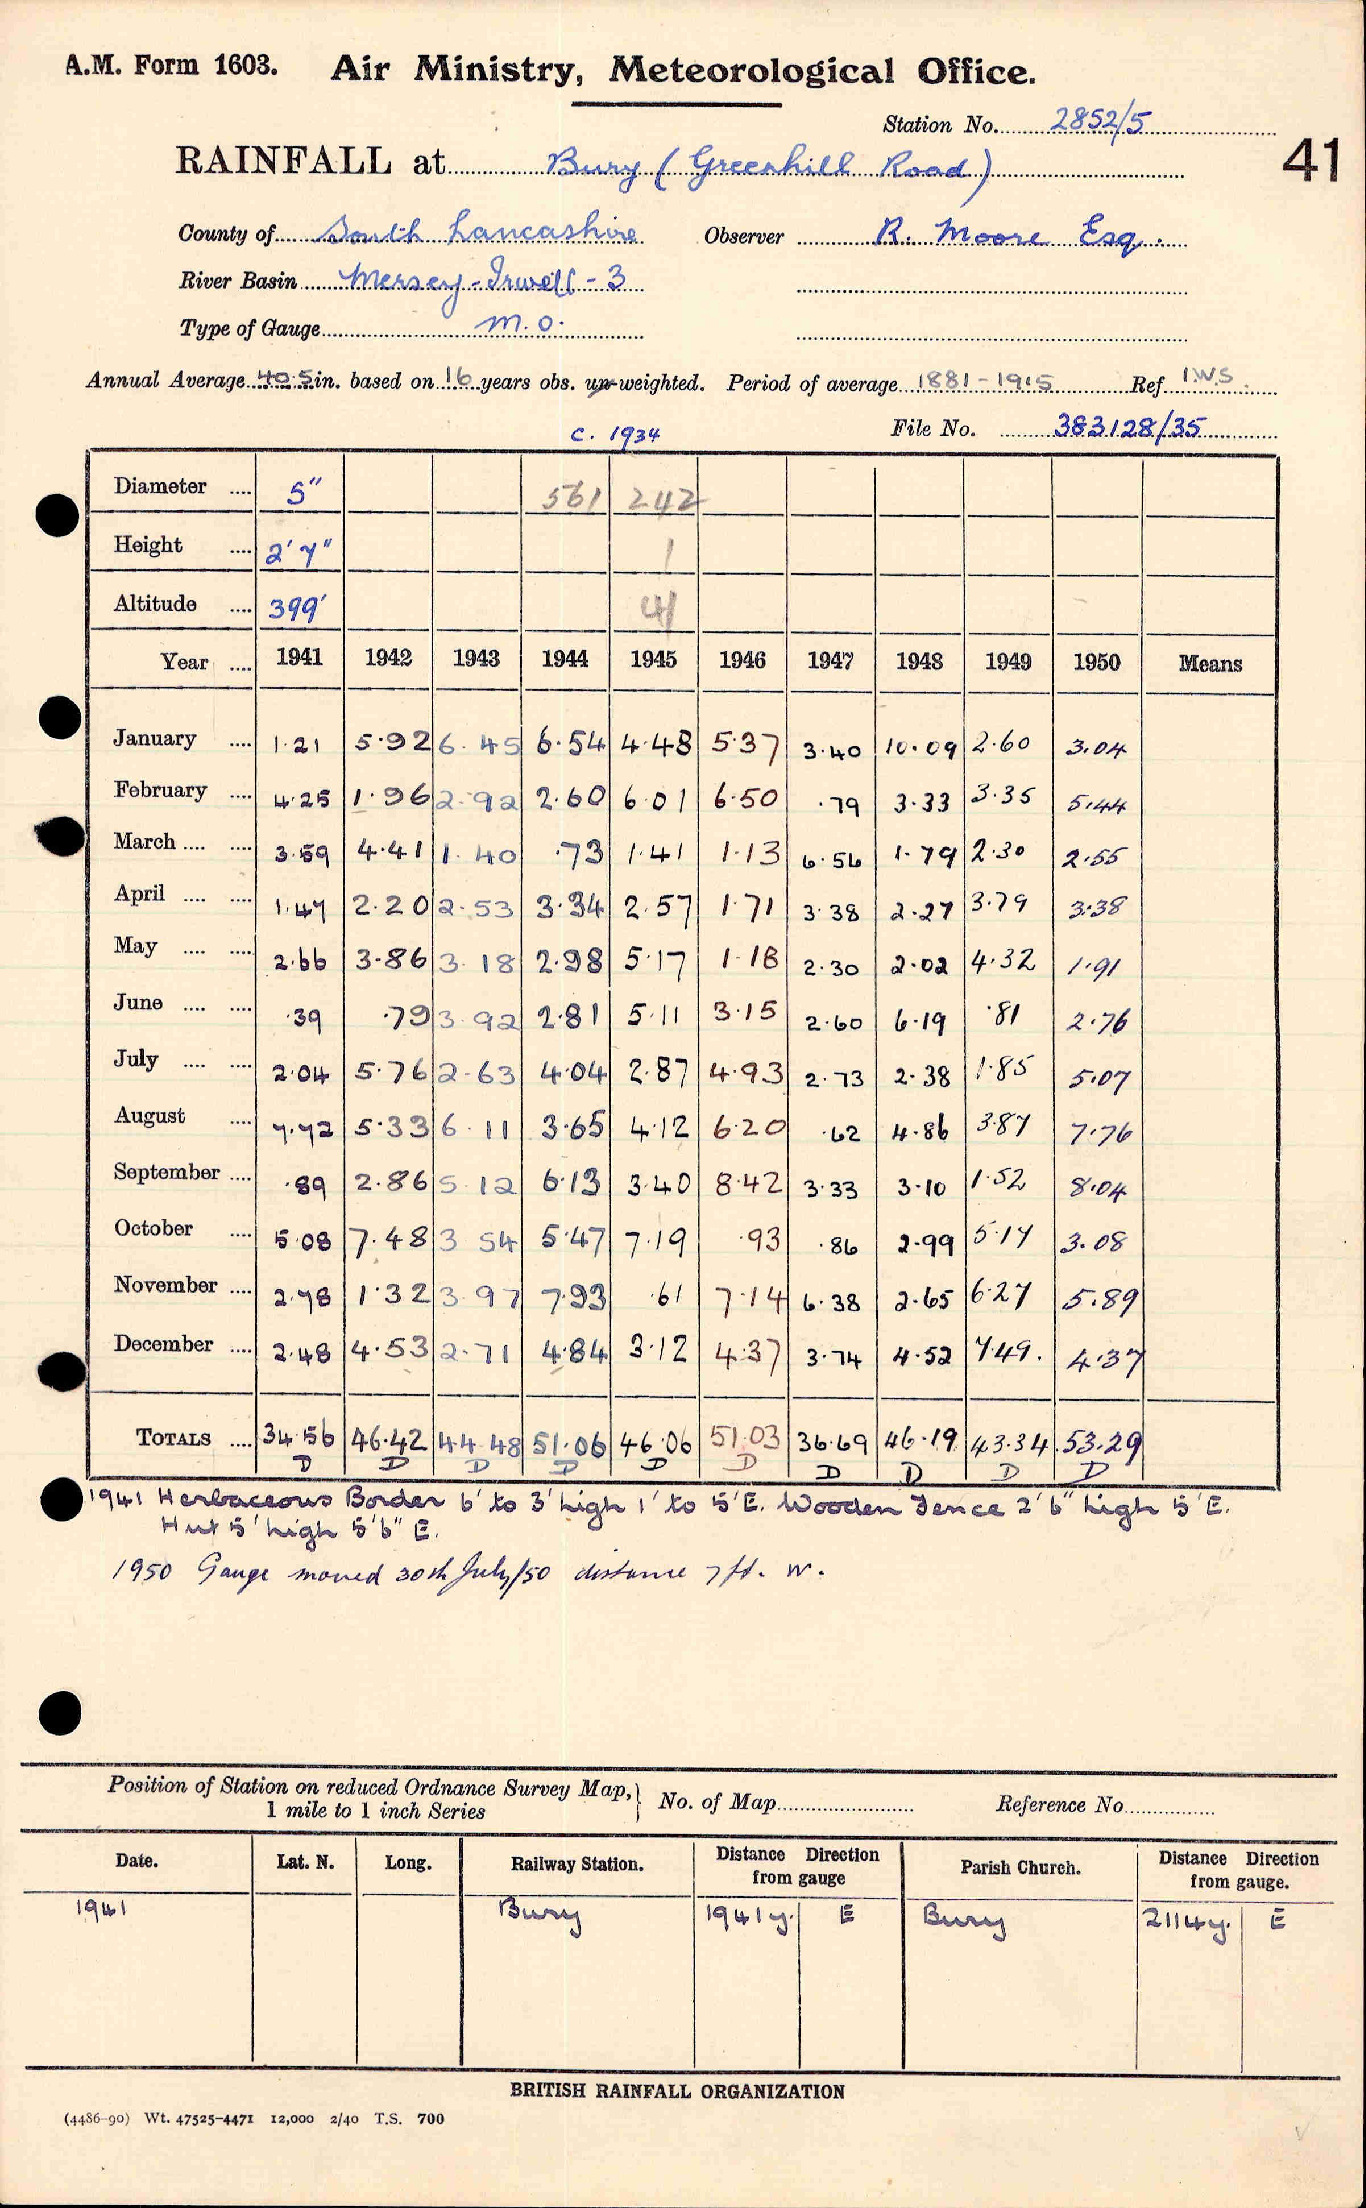 A.M. Form 1603. Air Ministry, Meteorological Office.
Station No. 2852/5
41
RAINFALL at Bury (Greenhill Road)
County of South Lancashire Observer R. Moore Esq.
River Basin Mersey-Irwell-3
Type of Gauge M.O.
Annual Average 40.5 in. based on 16 years obs. un-weighted. Period of average 1881-1915 Ref I.W.S.
c. 1934 File No. 383128/35
Diameter .... 5" 561 242
Height .... 2'7" 1
Altitude .... 399' 41
Year .... 1941 1942 1943 1944 1945 1946 1947 1948 1949 1950 Means
January .... 1.21 5.92 6.45 6.54 4.48 5.37 3.40 10.09 2.60 3.04
February .... 4.25 1.96 2.92 2.60 6.01 6.50 .79 3.33 3.35 5.44
March .... .... 3.59 4.41 1.40 .73 1.41 1.13 6.56 1.79 2.30 2.55
April .... .... 1.47 2.20 2.53 3.34 2.57 1.71 3.38 2.27 3.79 3.38
May .... .... 2.66 3.86 3.18 2.98 5.17 1.18 2.30 2.02 4.32 1.91
June .... .... .39 .79 3.92 2.81 5.11 3.15 2.60 6.19 .81 2.76
July .... .... 2.04 5.76 2.63 4.04 2.87 4.93 2.73 2.38 1.85 5.07
August .... 7.72 5.33 6.11 3.65 4.12 6.20 .62 4.86 3.87 7.76
September .... .89 2.86 5.12 6.13 3.40 8.42 3.33 3.10 1.52 8.04
October .... 5.08 7.48 3.54 5.47 7.19 .93 .86 2.99 5.17 3.08
November .... 2.78 1.32 3.97 7.93 .61 7.14 6.38 2.65 6.27 5.89
December .... 2.48 4.53 2.71 4.84 3.12 4.37 3.74 4.52 7.49. 4.37
TOTALS .... 34.56 46.42 44.48 51.06 46.06 51.03 36.69 46.19 43.34 53.29
D D D D D D D D D D
1941 Herbaceous Border 6' to 3' high 1' to 5' E. Wooden Fence 2'6" high 5' E.
Hut 5' high 5'6" E.
1950 Gauge moved 30th July/50 distance 7 ft. W.
Position of Station on reduced Ordnance Survey Map, 1 mile to 1 inch Series } No. of Map Reference No
Date. Lat. N. Long. Railway Station. Distance from gauge Direction Parish Church. Distance from gauge. Direction
1941 Bury 1941y. E Bury 2114y. E
BRITISH RAINFALL ORGANIZATION
(4486-90) Wt. 47525-4471 12,000 2/40 T.S. 700